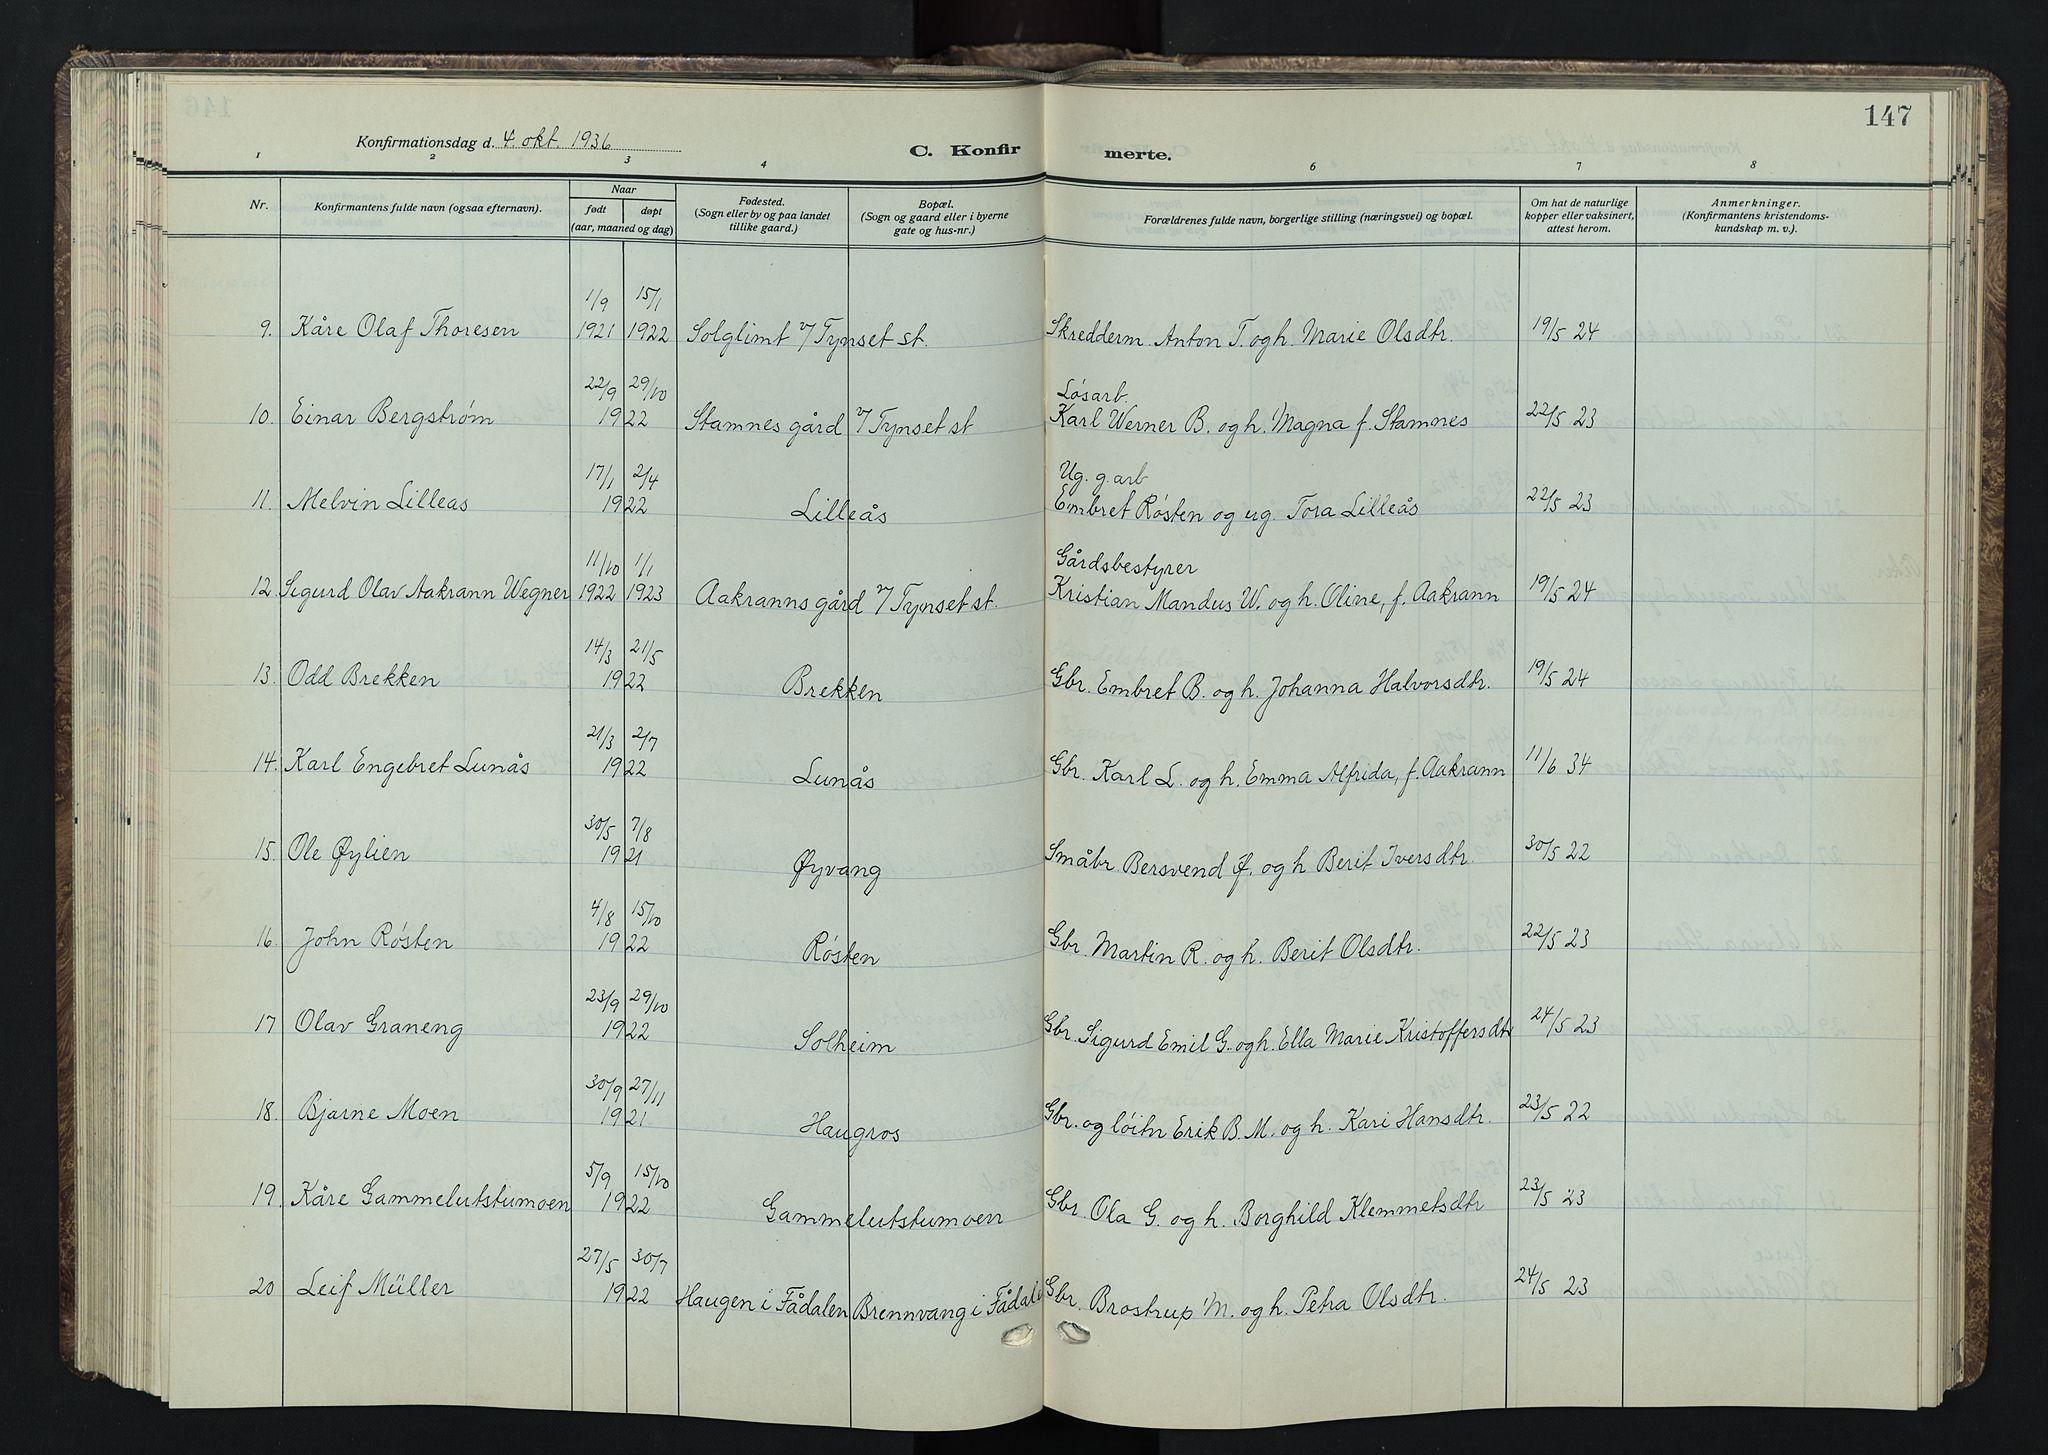 147
Konfirmationsdag d. 4. okt. 1936
C. Konfirmerte.
1 2 3 4 6 7 8
Nr.
Konfirmantens fulde navn (ogsaa efternavn).
Naar
født døpt
(aar, maaned og dag)
Fødested.
(Sogn eller by og paa landet
tillike gaard.)
Bopæl.
(Sogn og gaard eller i byerne
gate og hus-nr.)
Forældrenes fulde navn, borgerlige stilling (næringsvei) og bopæl.
Om hat de naturlige
kopper eller vaksinert,
attest herom.
Anmerkninger.
(Konfirmantens kristendoms-
kundskap m. v.).
1/9 15/1
9. Kåre Olaf Thoresen 1921 1922 Solglimt v/ Tynset st. Skredderm. Anton T. og h. Marie Olsdtr. 19/5 24
22/9 29/10 Løsarb.
10. Einar Bergstrøm 1922 Stamnes gård v/ Tynset st Karl Werner B. og h. Magna f. Stamnes 22/5 23
17/1 2/4 Ug. g. arb
11. Melvin Lilleas 1922 Lilleås Embret Røsten og ug. Tora Lilleås 22/5 23
11/10 1/1 Gårdsbestyrer
12 Sigurd Olav Aakrann Wegner 1922 1923 Aakranns gård v/ Tynset st. Kristian Mandus W. og h. Oline, f. Aakrann 19/5 24
14/3 21/5
13. Odd Brekken 1922 Brekken Gbr. Embret B. og h. Johanna Halvorsdtr. 19/5 24
21/3 2/7
14. Karl Engebret Lunås 1922 Lunås Gbr. Karl L. og h. Emma Alfrida, f. Aakrann 11/6 34
30/5 7/8
15. Ole Øylien 1921 Øyvang Småbr. Bersvend Ø. og h Berit Iversdtr. 30/5 22
4/8 15/10
16. John Røsten 1922 Røsten Gbr. Martin R. og h. Berit Olsdtr. 22/5 23
23/9 29/10
17 Olav Graneng 1922 Solheim Gbr. Sigurd Emil G. og h. Ella Marie Kristoffersdtr 24/5 23
30/9 27/11
18. Bjarne Moen 1921 Haugros Gbr. og løitn Erik B. M. og h. Kari Hansdtr. 23/5 22
5/9 15/10
19. Kåre Gammelutstumoen 1922 Gammelutstumoen Gbr. Ola G. og h. Borghild Klemmetsdtr 23/5 23
27/5 30/7
20 Leif Müller 1922 Haugen i Fådalen Brennvang i Fådalen Gbr. Brostrup M. og h. Petra Olsdtr. 24/5 23